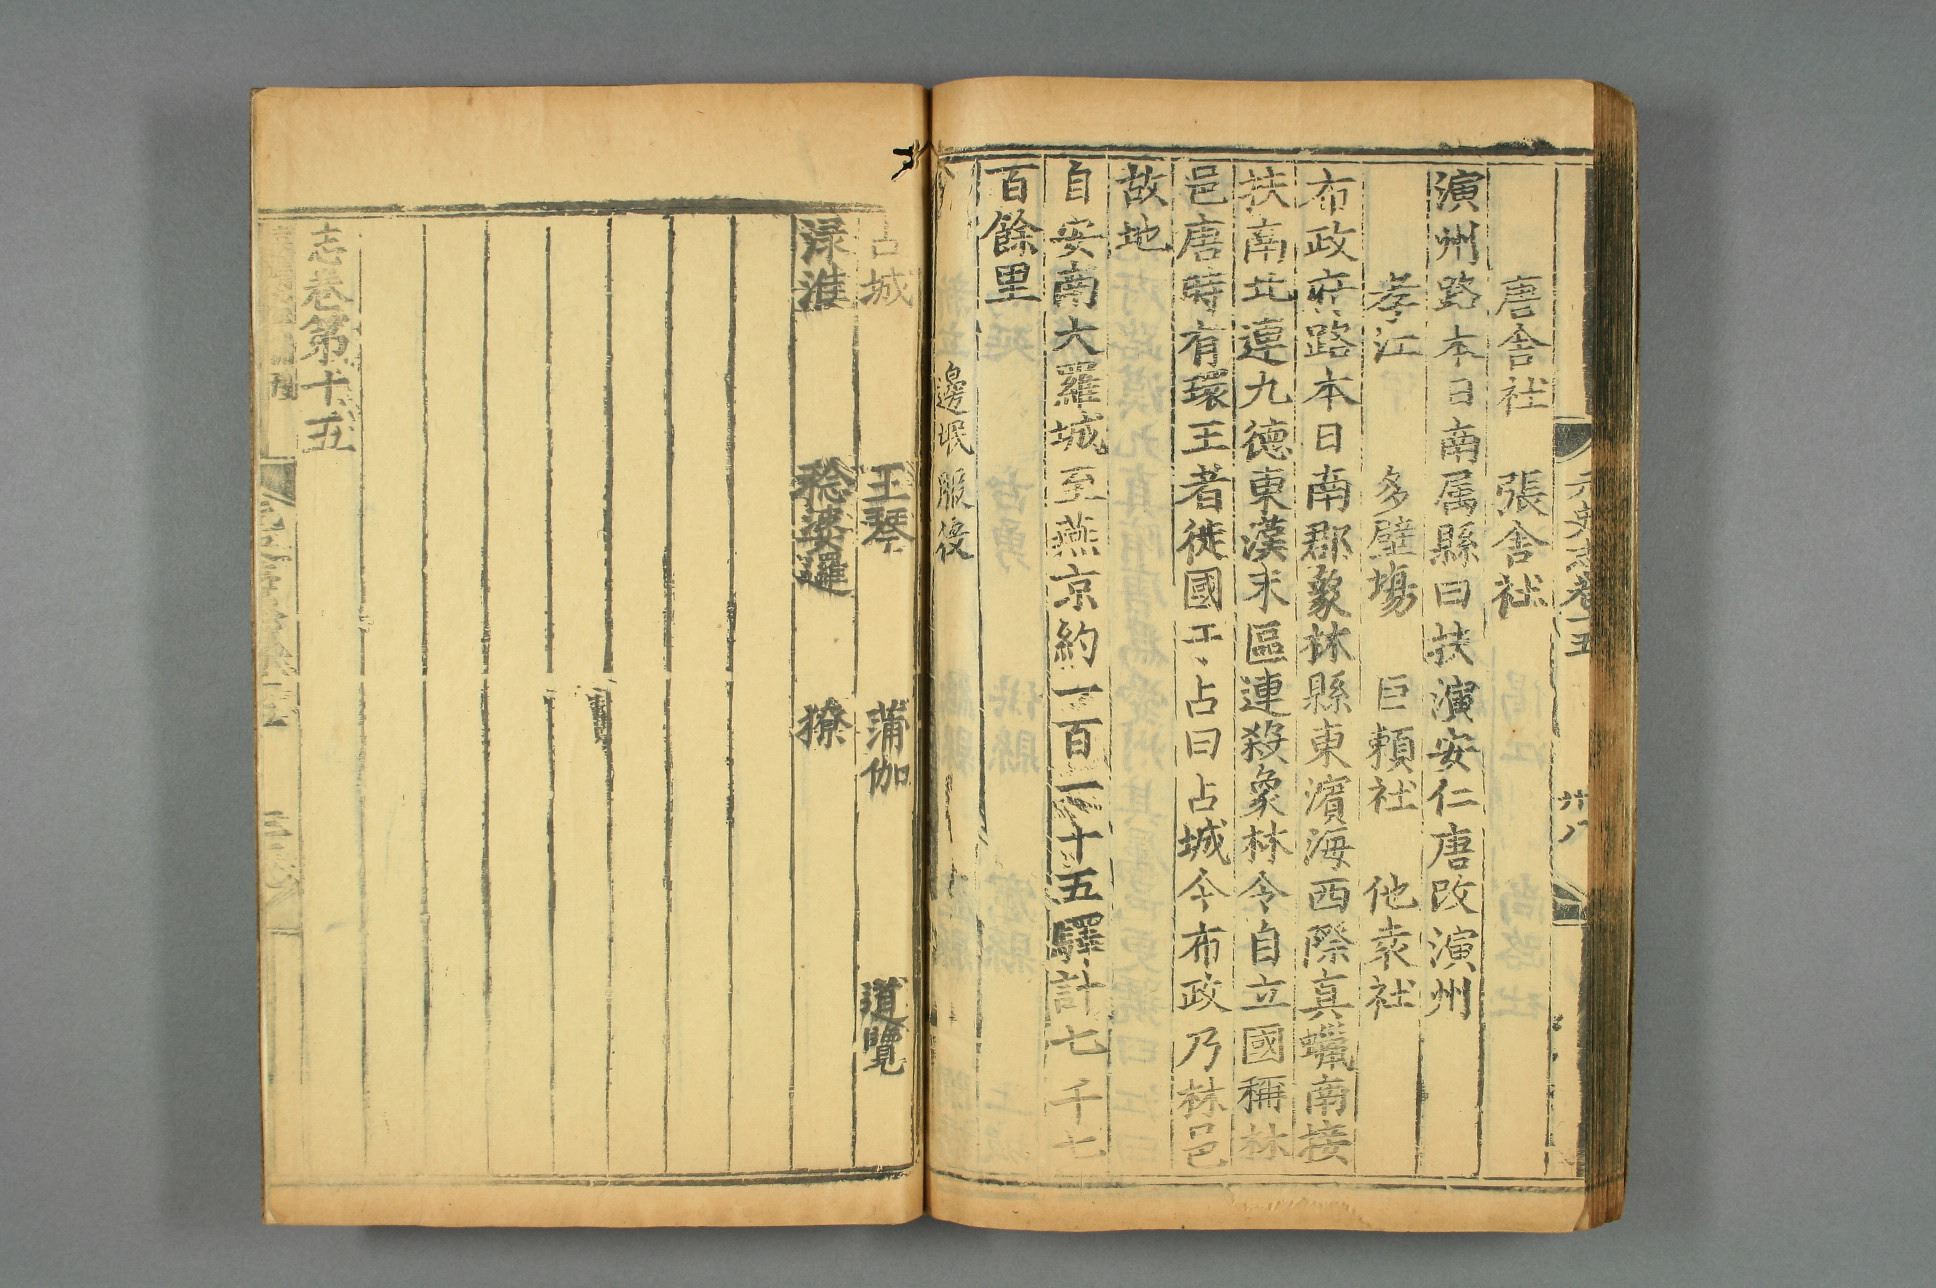 元史志卷十五
廿八
唐舍社 張舍社
演州路本日南属縣曰扶演安仁唐改演州
孝江 多壁場 巨賴社 他袁社
布政府路本日南郡象林縣東濱海西際真蠟南接
扶南北連九德東漢末區連殺象林令自立國稱林
邑唐時有環王者徙國于占曰占城今布政乃林邑
故地
自安南大羅城至燕京約一百一十五驛計七千七
百餘里
邊氓服役
占城 王琴 蒲伽 道覽
渌淮 稔婆邏 獠
志卷第十五